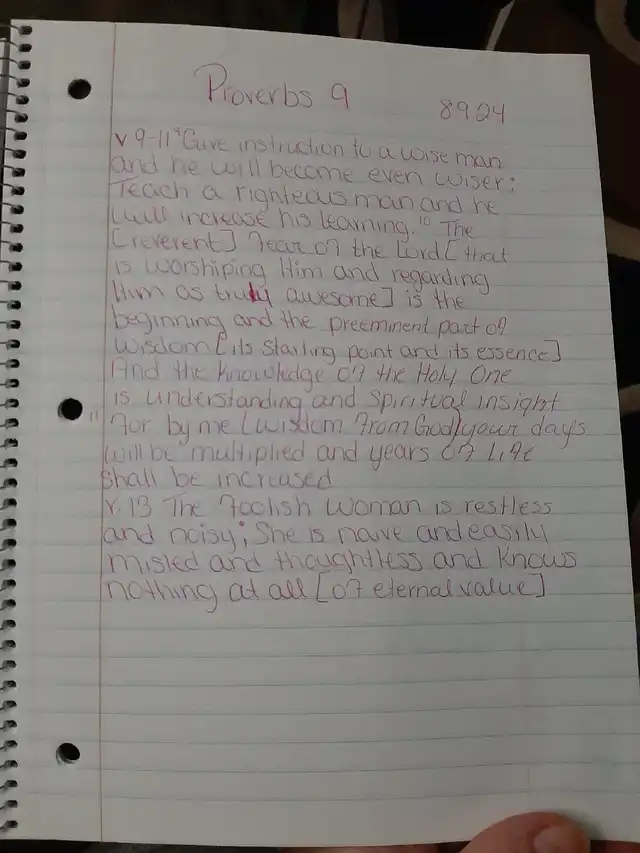 Proverbs 9
8924
v 9-11 9 Give instruction to a wise man
and he will become even wiser;
Teach a righteous man and he
will increase his learning. 10 The
[reverent] Fear of the Lord [that
is worshiping Him and regarding
Him as truly awesome] is the
beginning and the preeminent part of
wisdom [its starting point and its essence]
And the knowledge of the Holy One
is understanding and spiritual insight
11 For by me (wisdom from God) your days
will be multiplied and years of life
shall be increased
v. 13 The foolish woman is restless
and noisy; She is naive and easily
misled and thoughtless and knows
nothing at all [of eternal value]